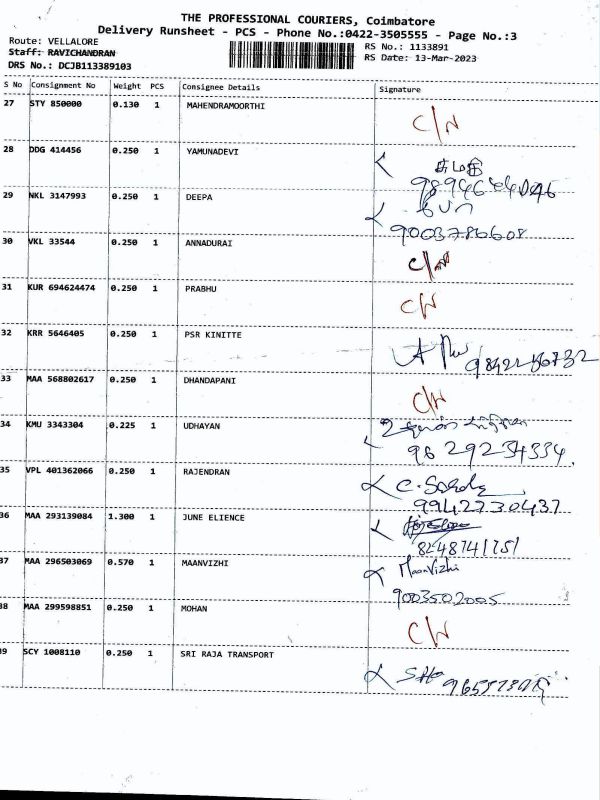 THE PROFESSIONAL COURIERS, Coimbatore
Delivery Runsheet - PCS - Phone No.:0422-3505555 - Page No.:3
Route: VELLALORE
Staff: RAVICHANDRAN
DRS No.: DCJB113389103
RS No.: 1133891
RS Date: 13-Mar-2023
S No Consignment No Weight PCS Consignee Details Signature
27 STY 850000 0.130 1 MAHENDRAMOORTHI C/N
28 DDG 414456 0.250 1 YAMUNADEVI
29 NKL 3147993 0.250 1 DEEPA
9003786608
30 VKL 33544 0.250 1 ANNADURAI C/N
31 KUR 694624474 0.250 1 PRABHU C/N
32 KRR 5646405 0.250 1 PSR KINITTE
33 MAA 568802617 0.250 1 DHANDAPANI C/N
34 KMU 3343304 0.225 1 UDHAYAN
96 29234334
35 VPL 401362066 0.250 1 RAJENDRAN
9942730437
36 MAA 293139084 1.300 1 JUNE ELIENCE
8248741751
37 MAA 296503069 0.570 1 MAANVIZHI Maanvizhi
9003502005
38 MAA 299598851 0.250 1 MOHAN C/N
39 SCY 1008110 0.250 1 SRI RAJA TRANSPORT